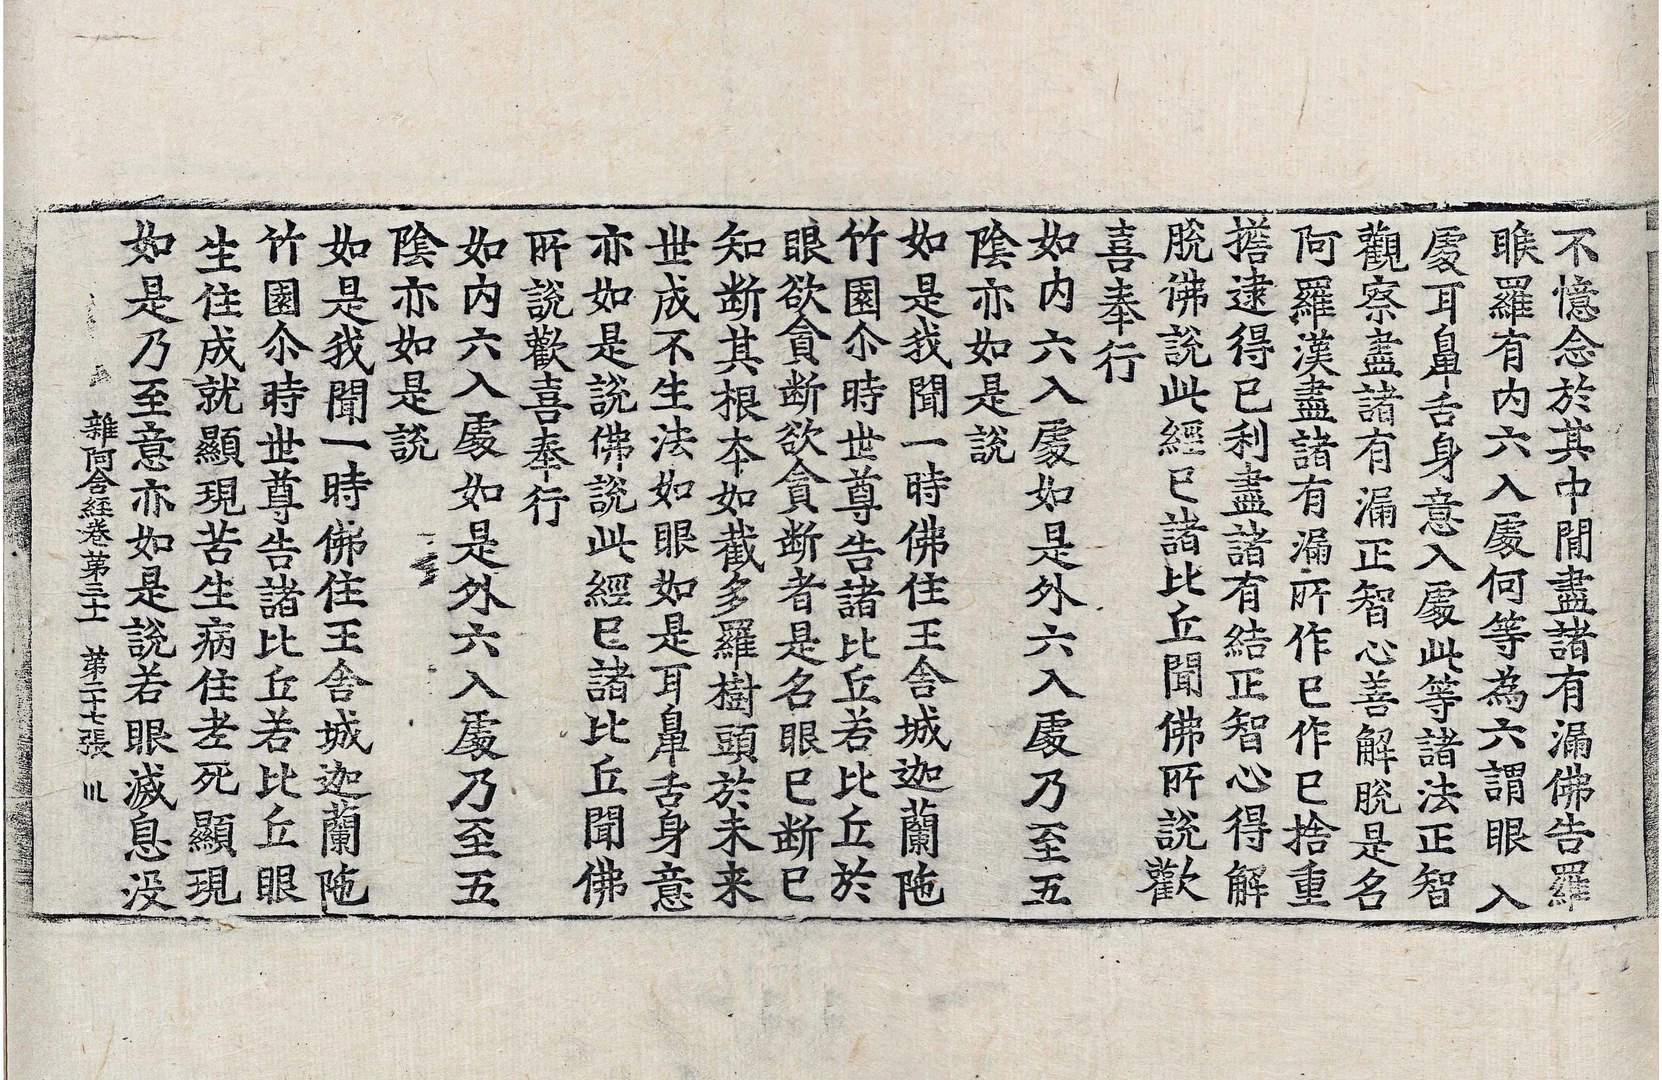 不憶念於其中閒盡諸有漏佛告羅
睺羅有內六入處何等為六謂眼入
處耳鼻舌身意入處此等諸法正智
觀察盡諸有漏正智心善解脫是名
阿羅漢盡諸有漏所作已作已捨重
擔逮得已利盡諸有結正智心得解
脫佛說此經已諸比丘聞佛所說歡
喜奉行
如內六入處如是外六入處乃至五
陰亦如是說
如是我聞一時佛住王舍城迦蘭陁
竹園尒時世尊告諸比丘若比丘於
眼欲貪断欲貪断者是名眼已断已
知断其根本如截多羅樹頭於未来
世成不生法如眼如是耳鼻舌身意
亦如是說佛說此經已諸比丘聞佛
所說歡喜奉行
如內六入處如是外六入處乃至五
陰亦如是說
如是我聞一時佛住王舍城迦蘭陁
竹園尒時世尊告諸比丘若比丘眼
生住成就顯現苦生病住老死顯現
如是乃至意亦如是說若眼滅息沒
雜阿含經卷第三十一 第二十七張 川